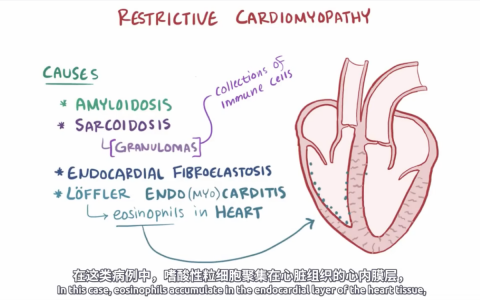 RESTRICTIVE CARDIOMYOPATHY
CAUSES
* AMYLOIDOSIS
* SARCOIDOSIS
[GRANULOMAS]
collections of
immune cells
* ENDOCARDIAL FIBROELASTOSIS
* LÖFFLER ENDO(MYO)CARDITIS
eosinophils in HEART
在这类病例中，嗜酸性粒细胞聚集在心脏组织的心内膜层，
In this case, eosinophils accumulate in the endocardial layer of the heart tissue,